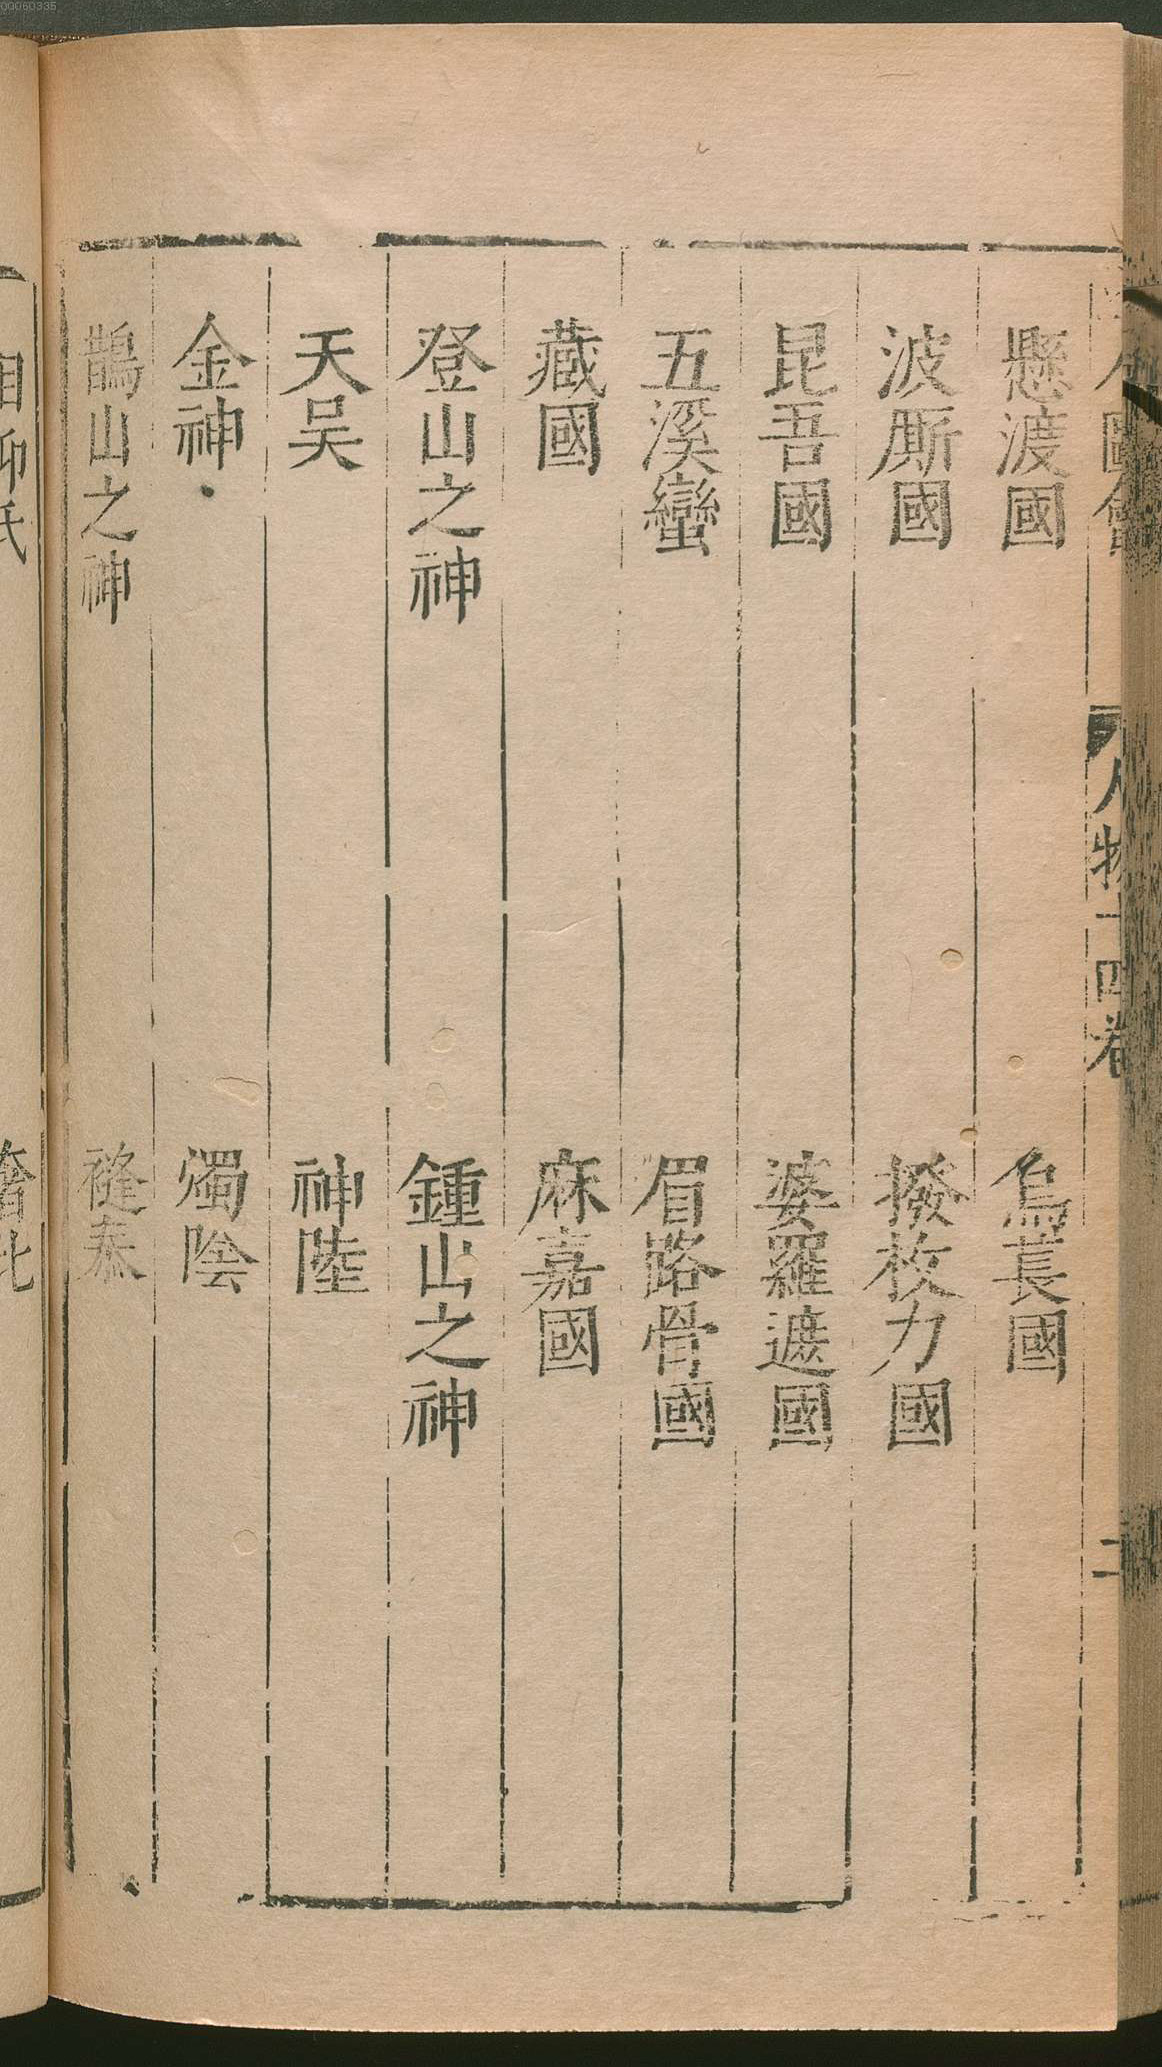 00060335
人物十四卷 二
懸渡國 烏萇國
波厮國 撥枚力國
昆吾國 婆羅遮國
五溪蠻 眉路骨國
藏國 麻嘉國
登山之神 鍾山之神
天吴 神陸
金神 燭陰
鵲山之神
氏